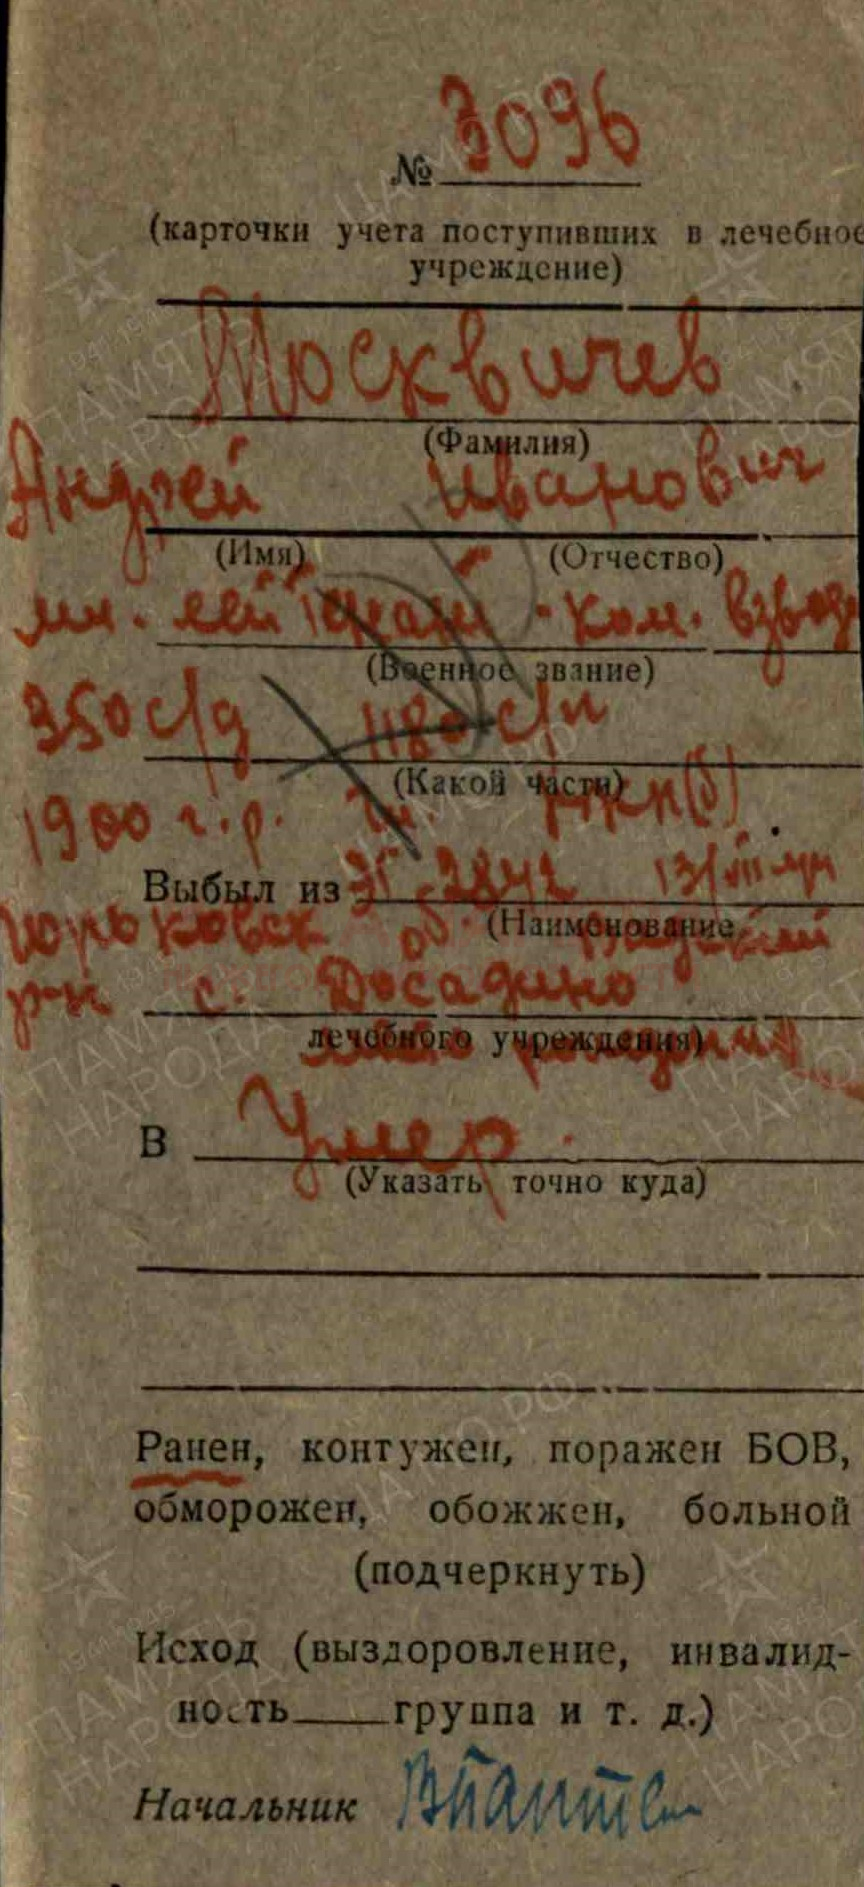 № 3096
(карточки учета поступивших в лечебное
учреждение)
Москвичев
(Фамилия)
Андрей Иванович
(Имя) (Отчество)
мл. лейтенант - ком. взвода
(Военное звание)
350 с/д 1180 с/п
(Какой части)
1900 г.р. ВКП(б)
Выбыл из ЭГ 2842 13/VIII
(Наименование
Горьковск об.
р-н с. Досадино
лечебного учреждения)
место рождения
В Умер.
(Указать точно куда)
Ранен, контужен, поражен БОВ,
обморожен, обожжен, больной
(подчеркнуть)
Исход (выздоровление, инвалид-
ность группа и т. д.)
Начальник
ПАМЯТЬ НАРОДА
1941-1945
ЦАМО.РФ